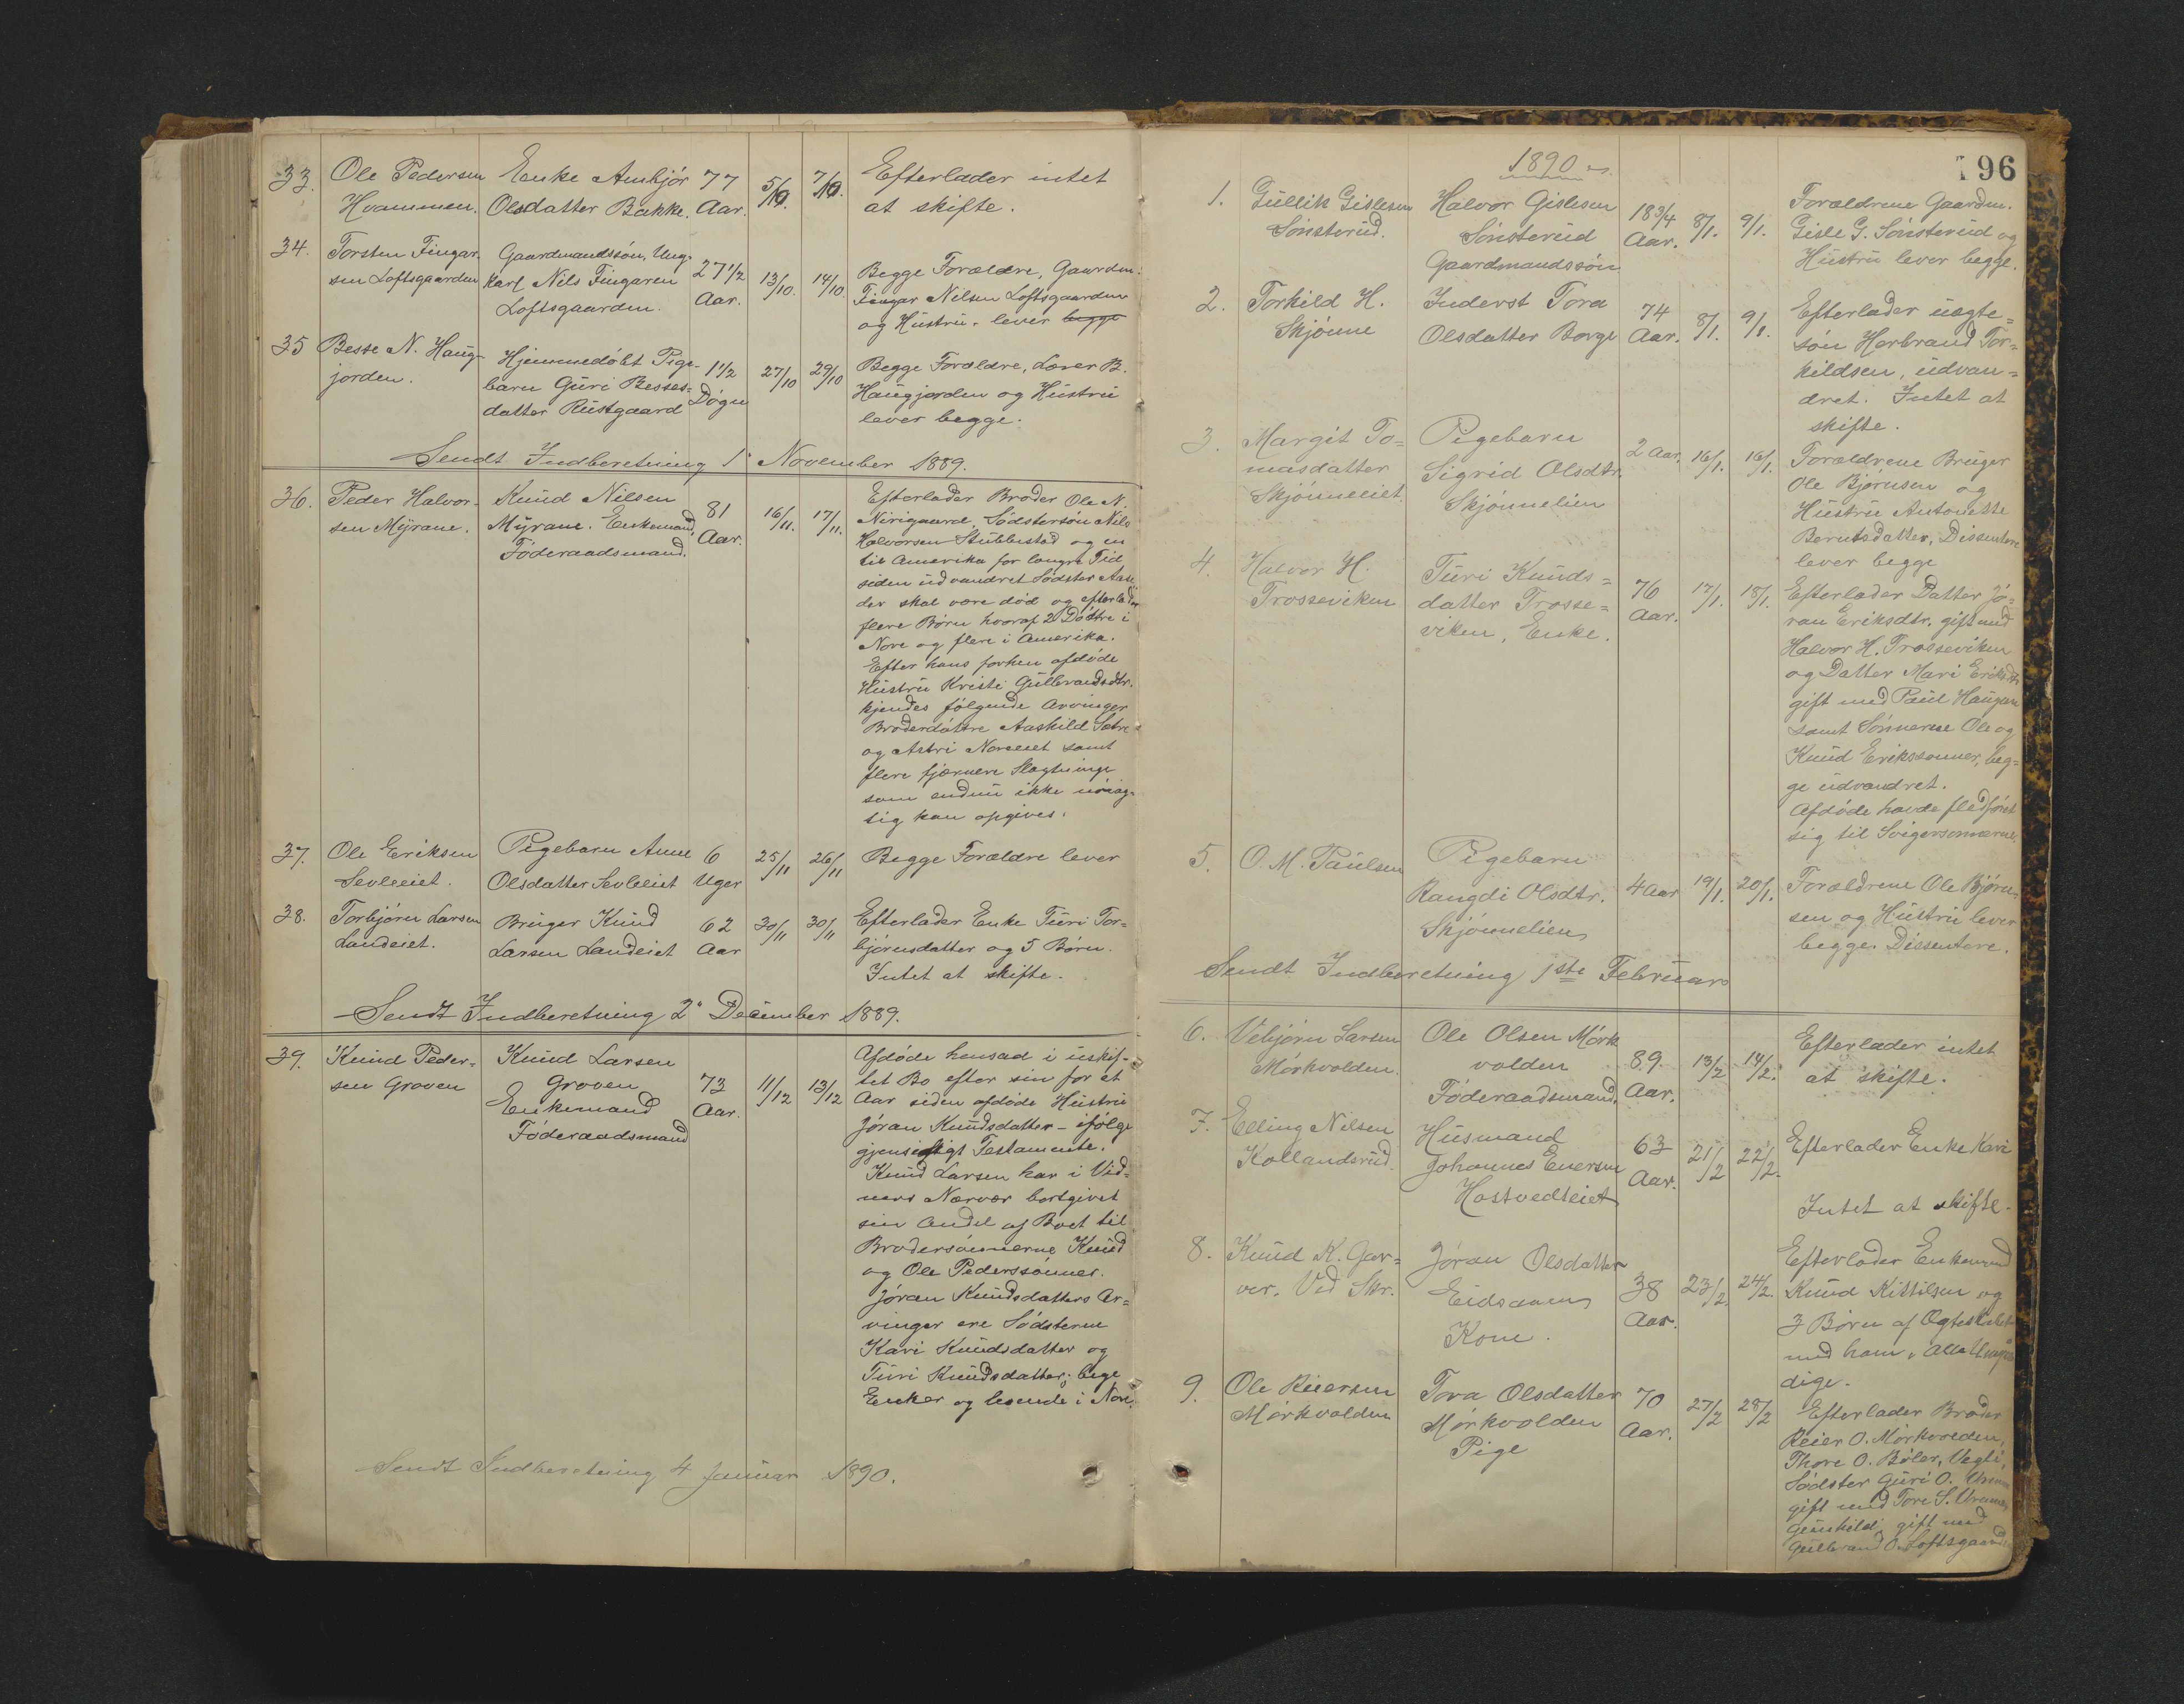 33. Ole Pedersen Enke Ambjör 77 5/10. 7/10. Efterlader intet
Hvammen. Olsdatter Bakke. Aar. at skifte.
34. Torsten Fingar- Gaardmandssön, Ung-
sen Loftsgaarden karl Nils Fingarsen 27 1/2 13/10. 14/10. Begge Forældre, Gaardm.
Loftsgaarden. Aar. Fingar Nilsen Loftsgaarden
og Hustru. lever begge
35 Besse N. Haug- Hjemmedöbt Pige- 1 1/2 27/10 29/10 Begge Forældre, Lærer B.
jorden. barn Guri Besses- Dögn Haugjorden og Hustru
datter Rustgaard lever begge.
Sendt Indberetning 1 November 1889.
36. Peder Halvor- Knud Nilsen 81 16/11. 17/11. Efterlader Broder Ole N.
sen Myrane. Myrane. Enkemand, Aar. Nirigaard, Södstersön Nils
Föderaadsmand. Halvorsen Stubberstad og en
til Amerika for længre Tid
siden udvandret Södster
der skal være död og efterlader
flere Börn hvoraf 2 Döttre i
Nore og flere i Amerika.
Efter hans forhen afdöde
Hustru Kristi Gulbrandsdtr.
kjendes fölgende Arvinger
Broderdöttre Aaskild Sætre
og Astri Noreeiet samt
flere fjærnere Slægtninge
som endnu ikke nöiag-
tig kan opgives.
37. Ole Eriksen Pigebarn Anne 6 25/11 26/11 Begge Forældre lever
Sevleeiet. Olsdatter Sevleeiet Uger
38. Torbjörn Larsen Bruger Knud 62 30/11 30/11 Efterlader Enke Turi Tor-
Landeiet. Larsen Landeiet Aar björnsdatter og 5 Börn.
Intet at skifte.
Sendt Indberetning 2 December 1889.
39. Knud Peder- Knud Larsen Afdöde hensad i uskif-
sen Groven Groven 73 11/12 13/12 tet Bo efter sin for et
Enkemand Aar. Aar siden afdöde Hustru
Föderaadsmand Jöran Knudsdatter - ifölge
gjensidigt Testamente.
Knud Larsen har i Vid-
ners Nærvær bortgivet
sin Andel af Boet til
Brodersönnerne Knud
og Ole Pederssönner.
Jöran Knudsdatters Ar-
vinger ere Södsterne
Kari Knudsdatter og
Turi Knudsdatter; bege
Enker og boende i Nore.
Sendt Indberetning 4 Januar 1890.
196
1890
1. Gullik Gislesen Halvor Gislesen 18 3/4 8/1. 9/1. Forældrene Gaardm.
Sönsterud. Sönsterud Aar. Gisle G. Sönsterud og
Gaardmandssön Hustru lever begge.
2. Torkild H. Inderst Tora 74 8/1. 9/1. Efterlader uægte=
Skjönne Olsdatter Borge Aar. sön Herbrand Tor=
kildsen, udvan=
dret. Intet at
skifte.
3. Margit To= Pigebarn 2 Aar. 16/1. 16/1. Forældrene Bruger
masdatter Sigrid Olsdtr. Ole Björnsen og
Skjönneeiet. Skjönnelien Hustru Antonette
Berntsdatter, Dissentere
lever begge
4. Halvor H. Turi Knuds= 76 17/1. 18/1. Efterlader Datter Jö=
Trosseviken datter Trosse= Aar. ran Eriksdtr. gift med
viken, Enke. Halvor H. Trosseviken
og Datter Mari Eriksdtr
gift med Paul Haugen
samt Sönnerne Ole og
Knud Erikssönner, beg=
ge udvandret.
Afdöde havde fledfört
sig til Svigersönnerne.
5. O. M. Paulsen Pigebarn
Rangdi Olsdtr. 4 Aar 19/1. 20/1. Forældrene Ole Björn-
Skjönnelien sen og Hustru lever
begge. Dissentere.
Sendt Indberetning 1ste Februar
6. Vebjörn Larsen Ole Olsen Mörk 89. 13/2 14/2. Efterlader intet
Mörkvolden. volden Aar. at skifte.
Föderaadsmand.
7. Elling Nilsen Husmand 63 21/2 22/2. Efterlader Enke Kari
Kollandsrud. Johannes Enersen Aar.
Hostvedteiet Intet at skifte.
8. Knud K. Gar= Jöran Olsdatter 38 23/2. 24/2. Efterlader Enkemand
ver. Ved Skr. Eidsaaen Aar. Knud Kittilsen og
Kone. 3 Börn af Ægteskabet
med ham, Alle Umyn
dige.
9. Ole Reiersen Tora Olsdatter 70 27/2 28/2 Efterlader Broder
Mörkvolden Mörkvolden Aar. Reier O. Mörkvolden,
Pige Thore O. Böler, Vegli,
Södster Guri O.
gift med Tore S.
Gunhild, gift med
Gulbrand O. Loftsgaarden